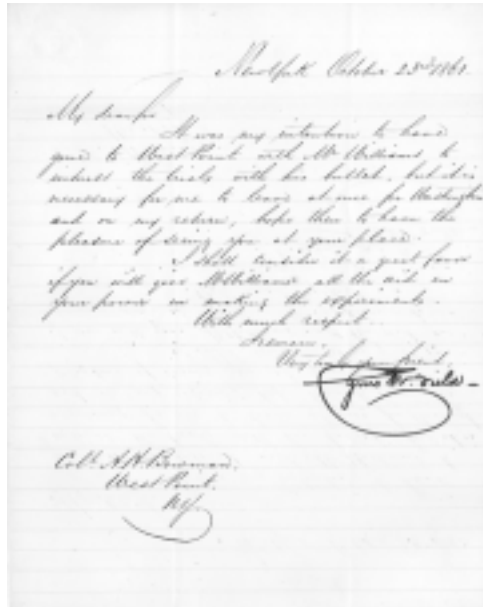 New York October 23rd 1861.
My dear Sir
It was my intention to have
gone to West Point with Mr Williams to
witness the trials with his bullet, but it is
necessary for me to leave at once for Washington
and on my return, hope then to have the
pleasure of seeing you at your place.
I shall consider it a great favor
if you will give Mr Williams all the aid in
your power in making the experiments.
With much respect
I remain,
Very truly your friend,
Cyrus W. Field
Col. A. H. Bowman.
West Point.
N.Y.